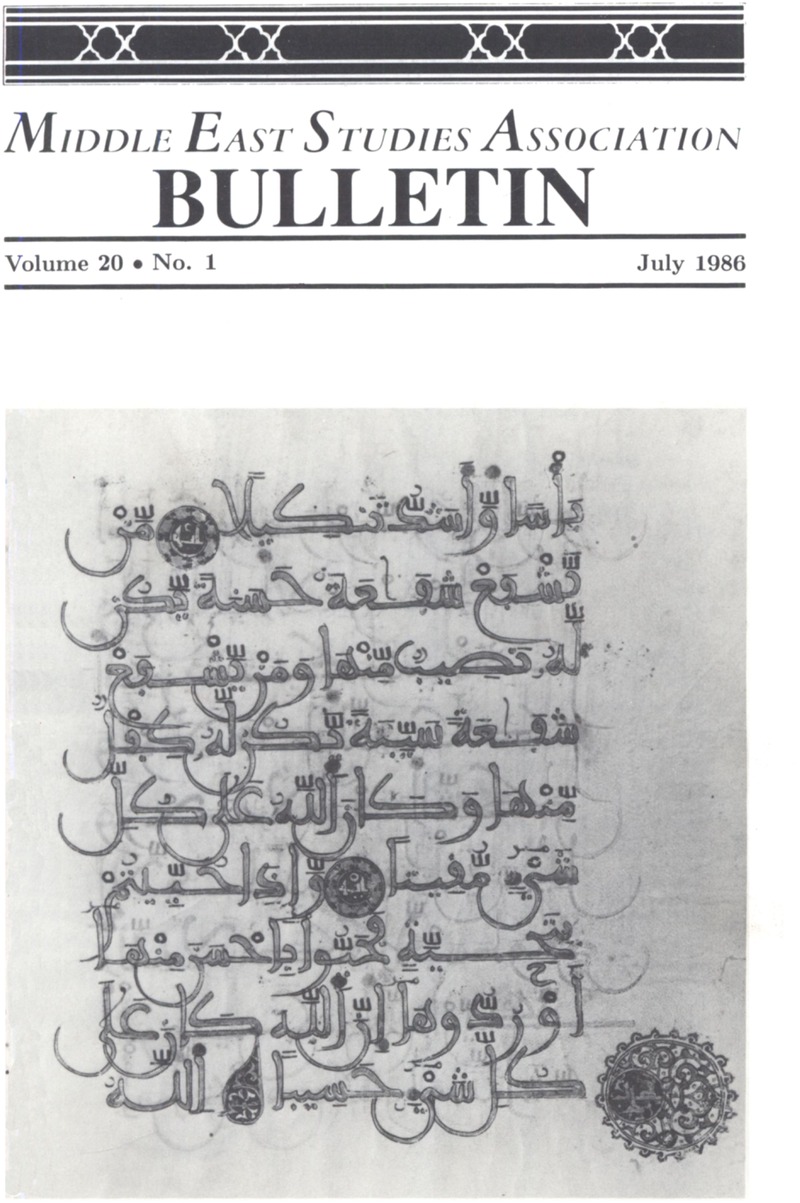 MIDDLE EAST STUDIES ASSOCIATION
BULLETIN
Volume 20 • No. 1 July 1986
بَأْسًا وَّأَشَدُّ تَنكِيلًا مَّنْ
يَّشْفَعْ شَفَٰعَةً حَسَنَةً يَّكُن
لَّهُۥ نَصِيبٌ مِّنْهَا وَمَنْ يَّشْفَعْ
شَفَٰعَةً سَيِّئَةً يَّكُن لَّهُۥ كِفْلٌ
مِّنْهَا وَكَانَ اللَّهُ عَلَىٰ كُلِّ
شَيْءٍ مُّقِيتًا وَّإِذَا حُيِّيتُمْ
بِتَحِيَّةٍ فَحَيُّوا بِأَحْسَنَ مِنْهَا
أَوْ رُدُّوهَا إِنَّ اللَّهَ كَانَ عَلَىٰ
كُلِّ شَيْءٍ حَسِيبًا اللَّهُ